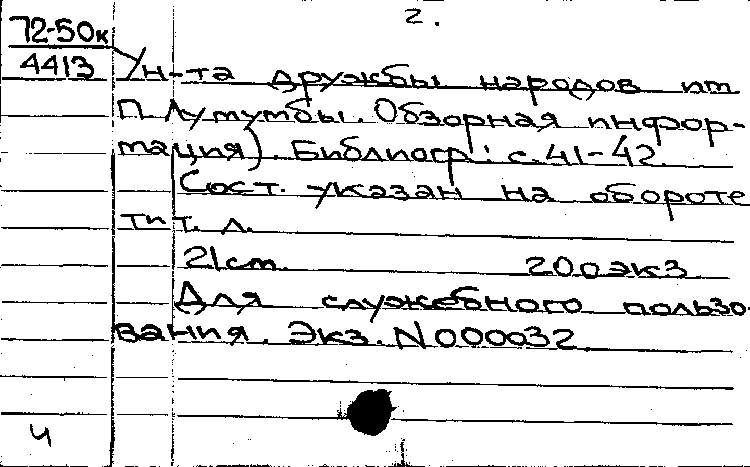 2.
72-50к
4413
Ун-та дружбы народов им
П. Лумумбы. Обзорная инфор-
мация). Библиогр: с. 41-42.
Сост. указан на обороте
тит. л.
21 см. 200 экз
Для служебного пользо-
вания. Экз. N 000032.
Ч